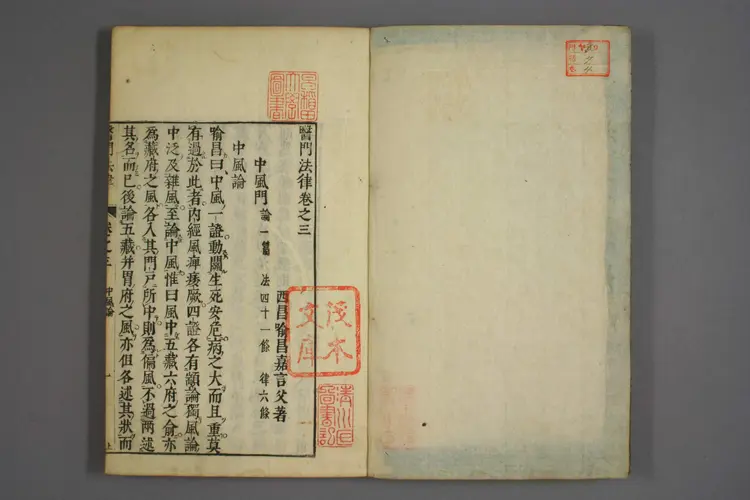 醫門法律卷之三
西昌喻昌嘉言父著
中風門 論一篇 法四十一條 律六條
中風論
喻昌曰中風一證動關生死安危病之大而且重莫
有過於此者內經風痺痿厥四證各有顓論獨風論
中泛及雜風至論中風惟曰風中五藏六府之俞亦
為藏府之風各入其門戸所中則為偏風不過兩述
其名而已後論五藏并胃府之風亦但各述其狀而
醫門法律
卷之三
中風論
一
早稻田大學圖書
淺木文庫